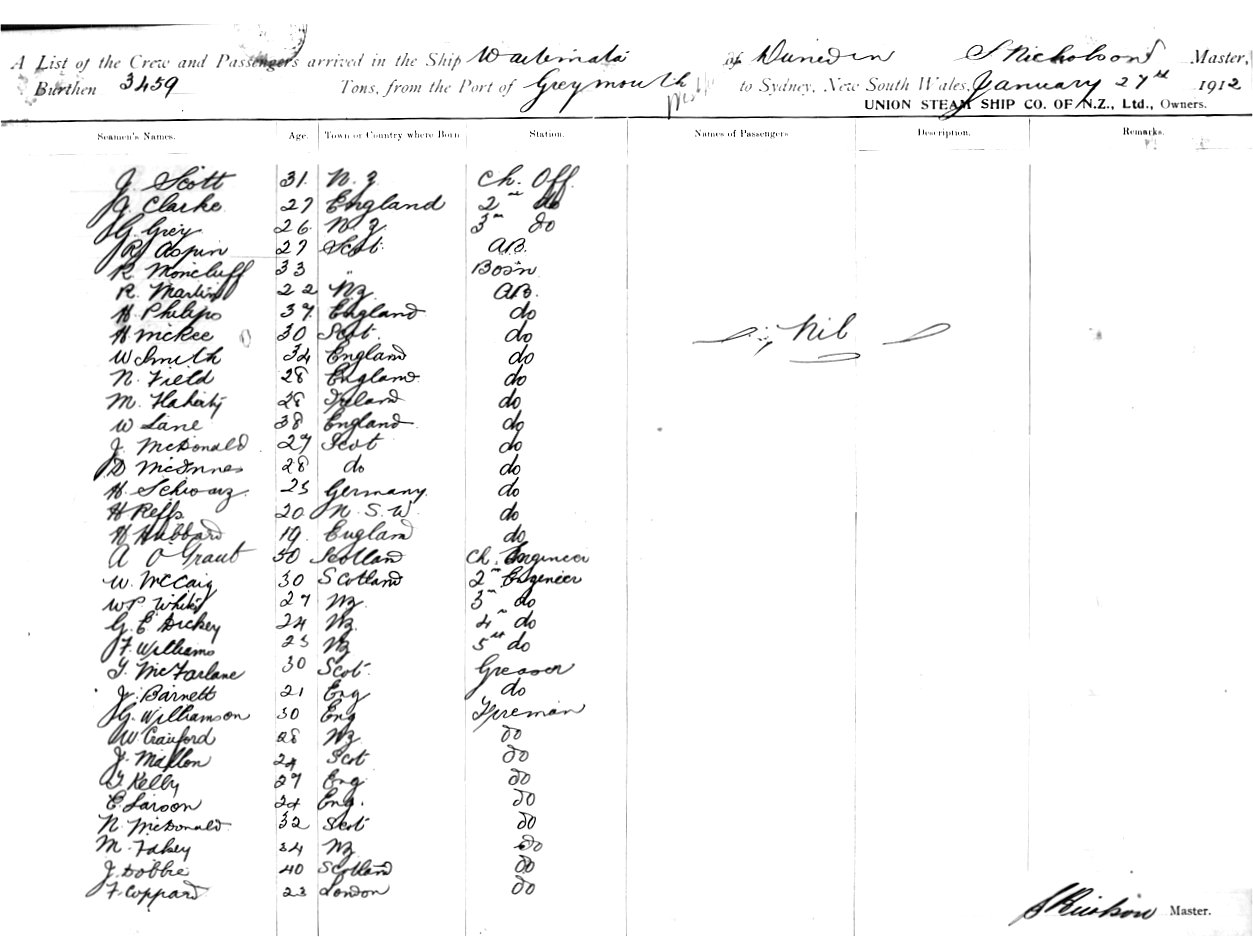 A List of the Crew and Passengers arrived in the Ship Waitemata of Dunedin S Nicholson Master,
Burthen 3459 Tons, from the Port of Greymouth to Sydney, New South Wales, January 27th 1912
UNION STEAM SHIP CO. OF N.Z., Ltd., Owners.
Seamen's Names. Age. Town or Country where Born Station. Names of Passengers Description. Remarks.
J. Scott 31. N.Z Ch. Off
J. Clarke 27 England 2nd do
G. Grey 26 N.Z 3rd do
R. Aspin 27 Scot. AB.
R. Moncluff 33 " Bosn
R. Martin 22 NZ. AB.
H. Philips 37. England do
H. McKee 30 Scot. do Nil
W Smith 34 England do
N. Field 28 England do
M. Flaherty 28 Ireland do
W Lane 38 England do
J. McDonald 27 Scot do
D McInnes 28 do do
H. Schwarz. 25 Germany. do
H Reffs 20 N.S.W. do
H Hubbard 19. England do
A O Grant 50 Scotland Ch. Engineer
W. McCaig 30 Scotland 2nd Engineer
WP White 27 NZ. 3rd do
G. E Dickey 24 NZ. 4th do
F. Williams 25 NZ 5th do
T. McFarlane 30 Scot. Greaser
J. Barnett 21 Eng do
G. Williamson 30 Eng Fireman
W Crawford 28 NZ do
J. Mallon 24 Scot do
T Kelly 27 Eng do
E Larson 24 Eng. do
N. McDonald 32 Scot do
M. Fahey 34 NZ do
J. Dobbie 40 Scotland do
F. Coppard 23 London do
Master.